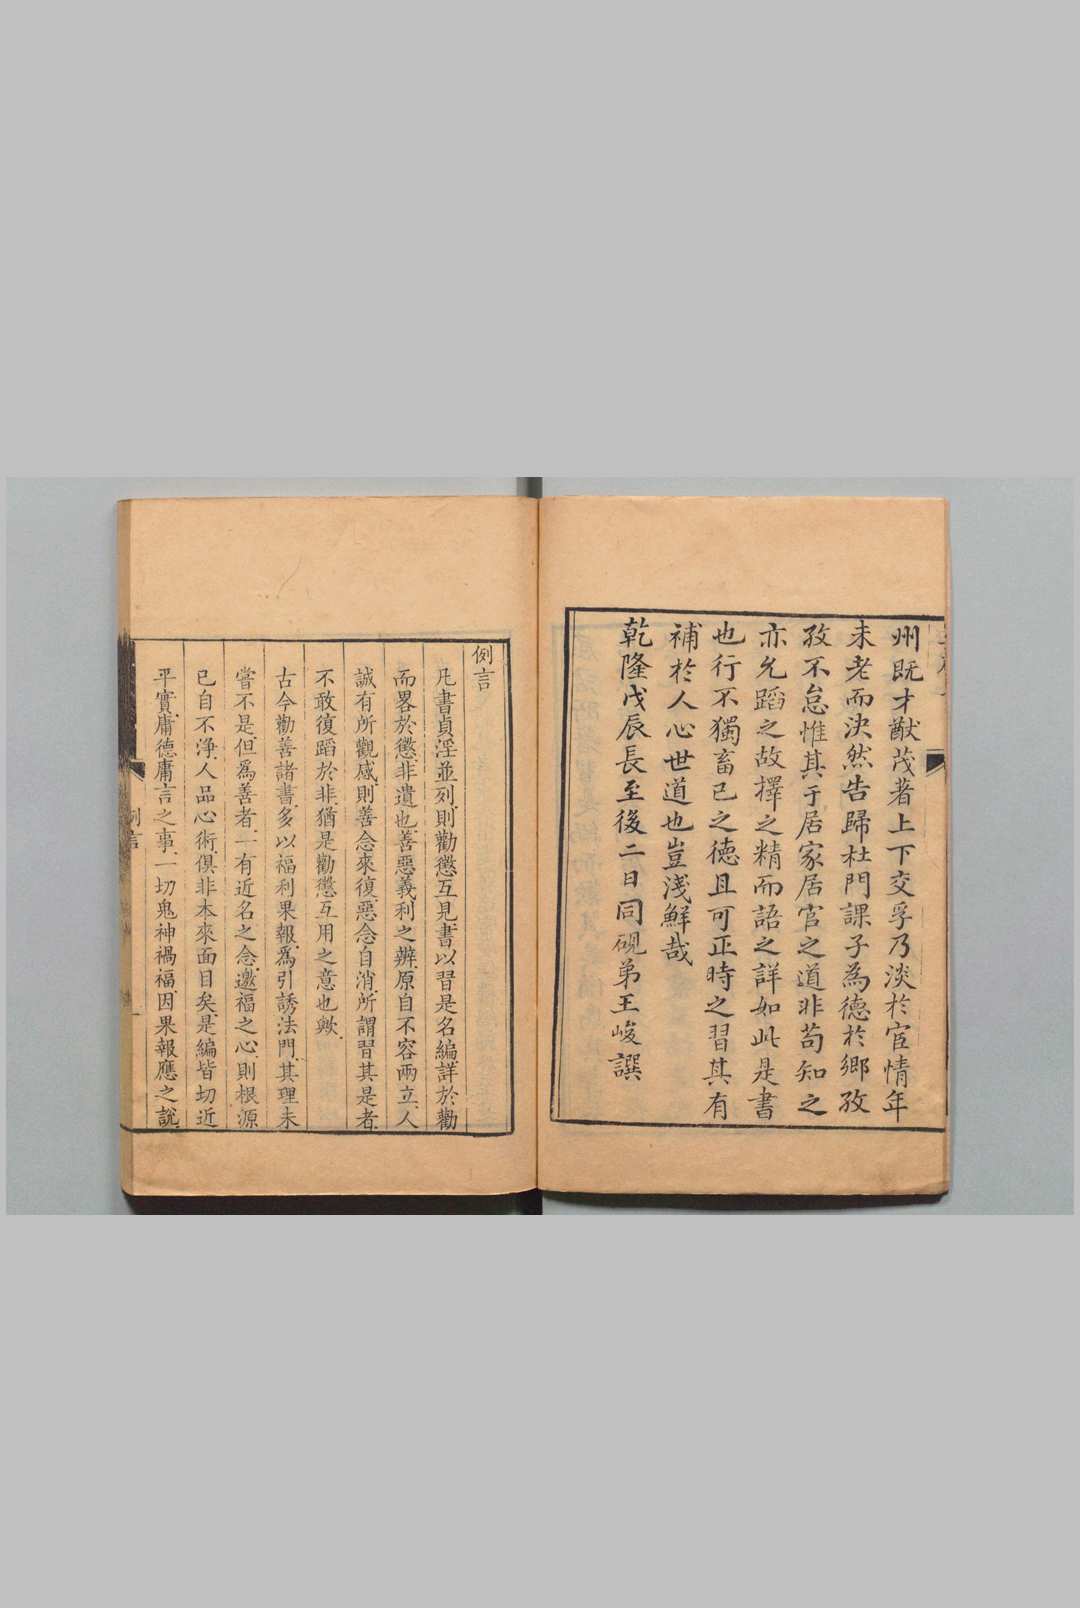 州既才猷茂著上下交孚乃淡於宦情年
未老而決然告歸杜門課子為德於鄉孜
孜不怠惟其于居家居官之道非苟知之
亦允蹈之故擇之精而語之詳如此是書
也行不獨畜已之德且可正時之習其有
補於人心世道也豈淺鮮哉
乾隆戊辰長至後二日同硯弟王峻譔
例言
凡書貞淫並列則勸懲互見書以習是名編詳於勸
而畧於懲非遺也善惡義利之辨原自不容兩立人
誠有所觀感則善念來復惡念自消所謂習其是者
不敢復蹈於非猶是勸懲互用之意也歟
古今勸善諸書多以福利果報爲引誘法門其理未
嘗不是但爲善者一有近名之念邀福之心則根源
已自不淨人品心術俱非本來面目矣是編皆切近
平實庸德庸言之事一切鬼神禍福因果報應之說
例言
一